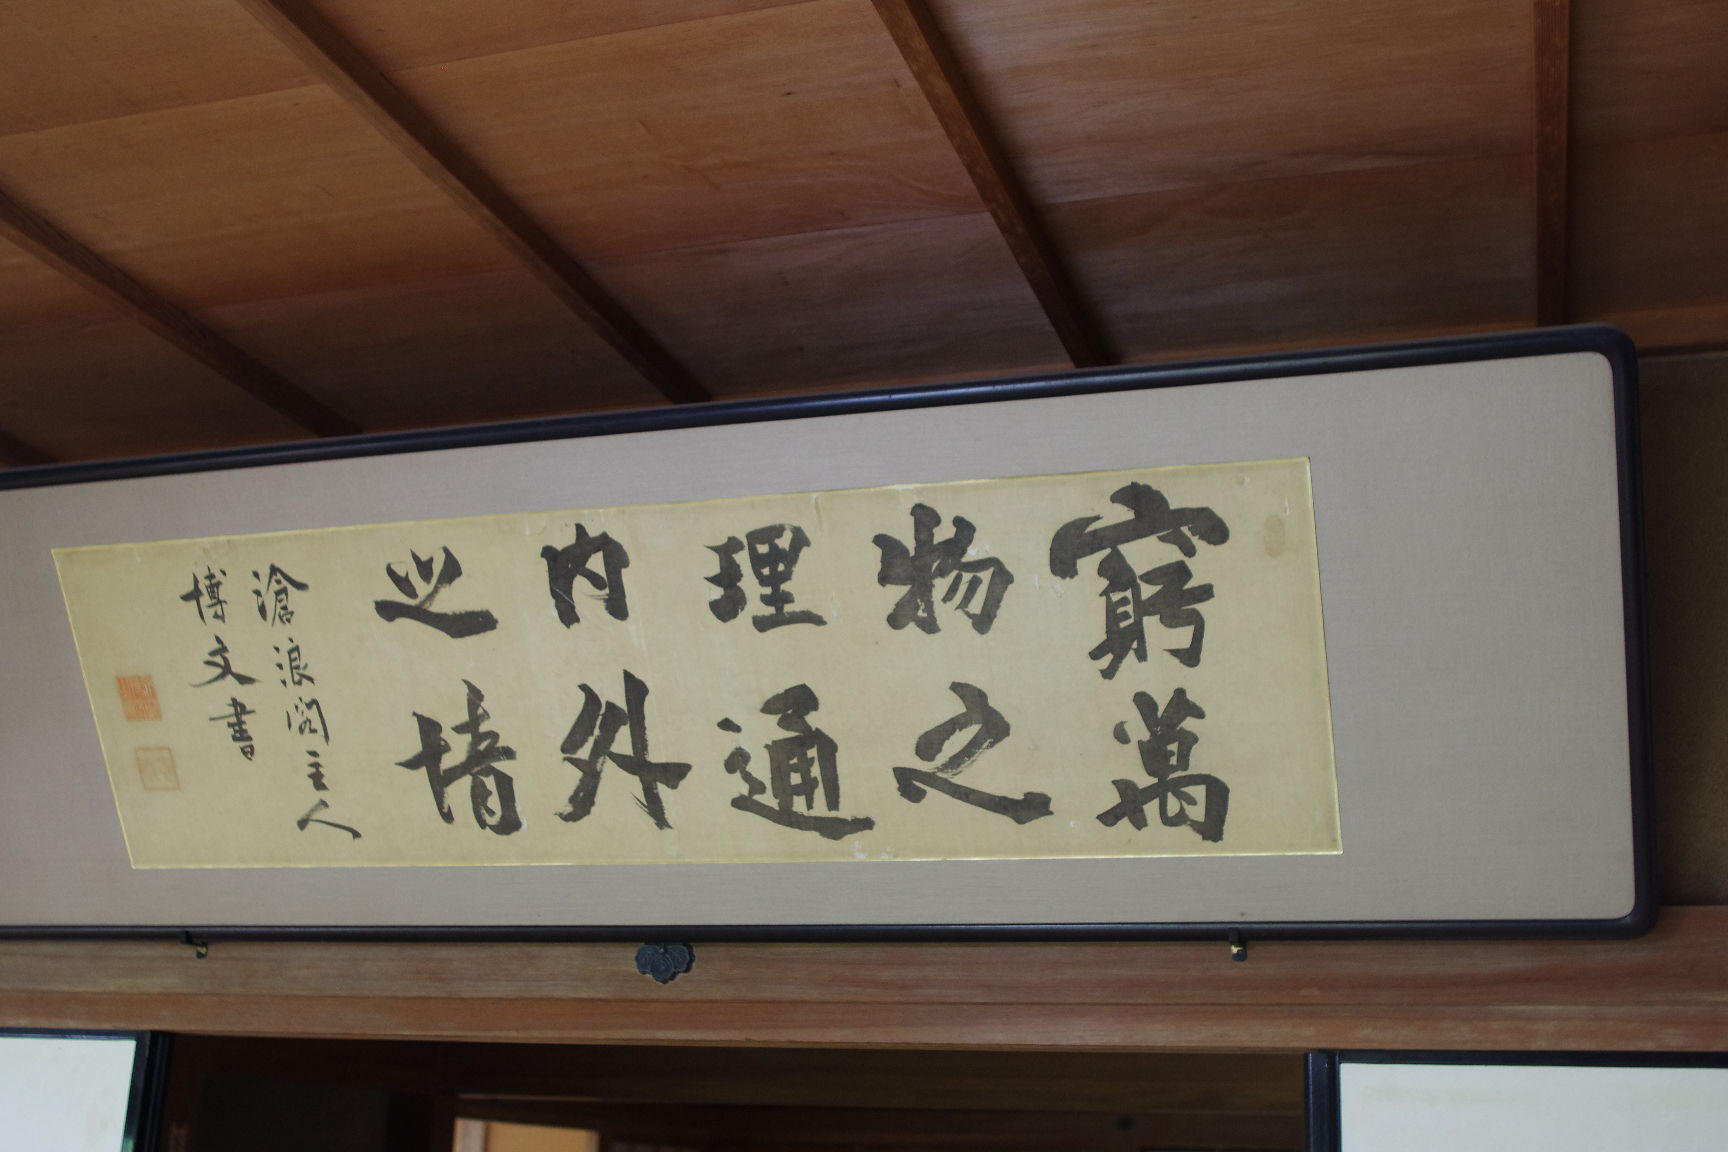 窮萬
物之
理通
内外
之情
滄浪閣主人
博文書